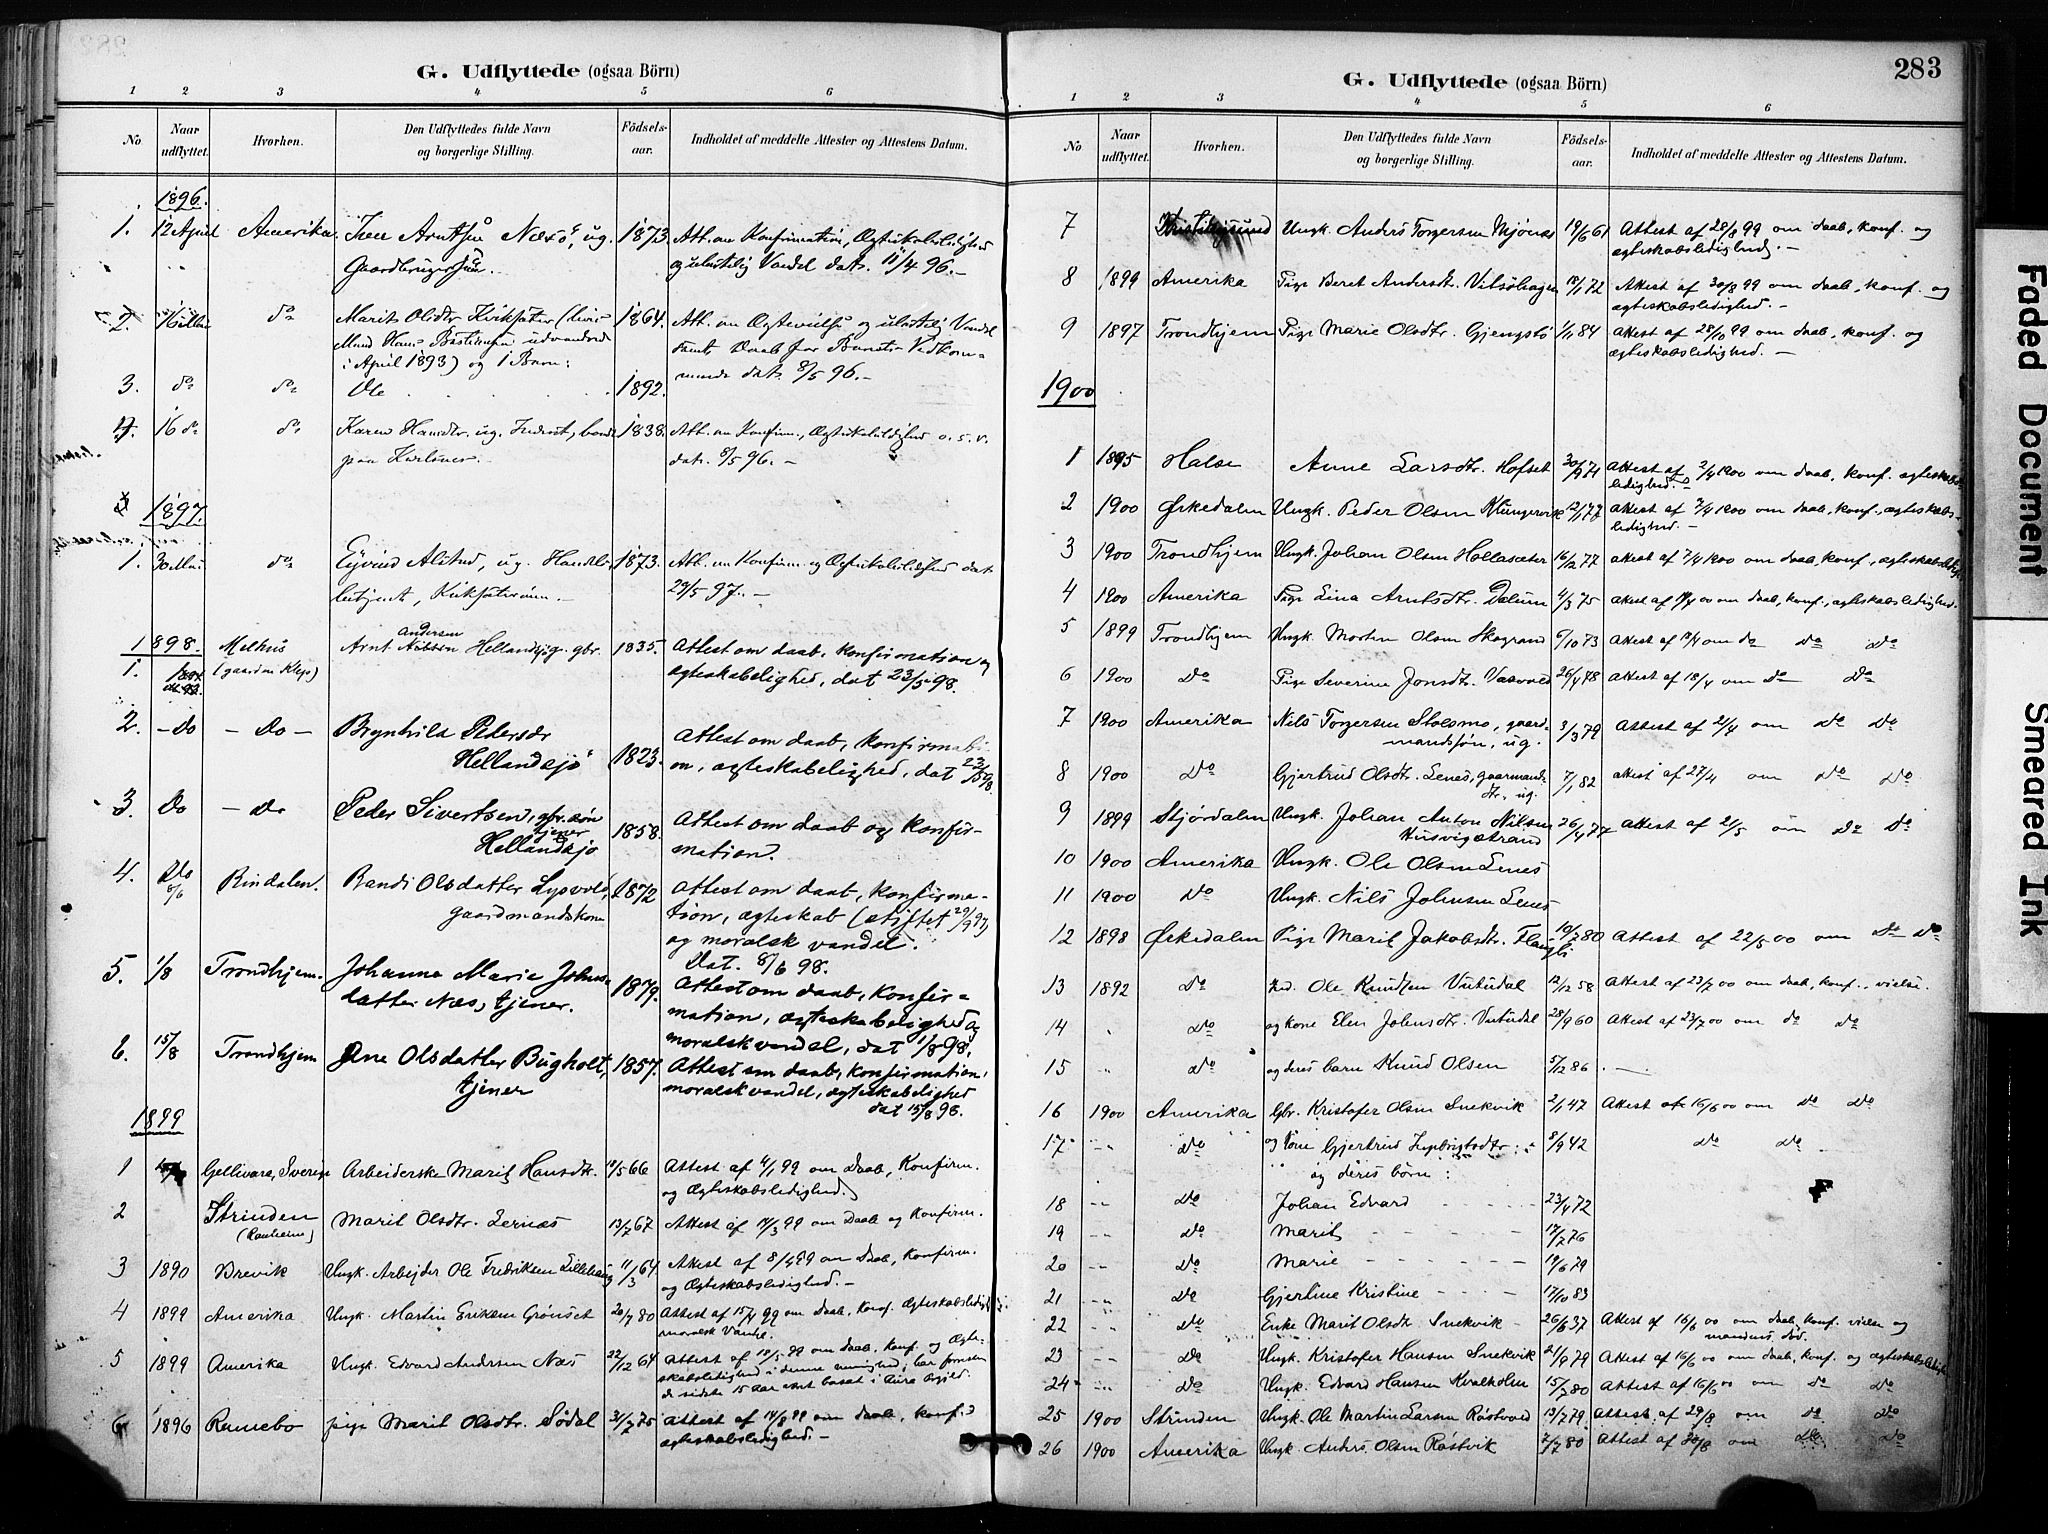 G. Udflyttede (ogsaa Börn)
1 2 3 4 5 6
No Naar udflyttet. Hvorhen. Den Udflyttedes fulde Navn og borgerlige Stilling. Födsels-aar. Indholdet af meddelte Attester og Attestens Datum.
1896.
1. 12 April Amerika. Iver Arntsen Næsø, ug. 1873. Att. om Konfirmation, Ægteskabsledighed
Gaardbrugersøn. og ulastelig Vandel dat. 11/4 96. -
2. Do Marit Olsdtr. 1864. Att. om
Mand Hans Bastiansen udvandrede samt Daab for Barnets Vedkom-
i April 1893) og 1 Barn: mende dat. 8/5 96. -
3. do do Ole 1892.
4. 16 do do Karen Hansdtr. ug. 1838. Att. om Konfirm., Ægteskabsledighed o.s.v.
paa dat. 8/5 96. -
1897.
1. 30 Mai do Eyvind Alstad, ug. Handels- 1873. Att. om Konfirm. og Ægteskabsledighed dat.
betjent, 29/5 97. -
1898. Melhus Arnt Andersen Hellandsjø. gbr. 1835. Attest om daab, konfirmation og
1. (gaarden Klep) ægteskabelighed, dat 23/5 98.
2. - Do - Do - Brynhild Pedersdr Hellandsjø 1823. Attest om daab, konfirmati-
on, ægteskabelighed, dat 23/5 98.
3. Do - Do Peder Sivertsen, gbr.søn tjener Hellandsjø 1858. Attest om daab og konfir-
mation.
4. Do 8/6 Rindalen. Randi Olsdatter Lysvold, gaardmandskone 1872 Attest om daab, konfirma-
tion, ægteskab (stiftet 29/9 97)
og moralsk vandel.
Dat. 8/6 98.
5. 1/8 Trondhjem. Johanna Marie Johns- 1879. Attest om daab, konfir-
datter Næs, tjener. mation, ægteskabelighed og
moralsk vandel, dat 1/8 98.
6. 15/8 Trondhjem Ane Olsdatter Bugholt, tjener 1857. Attest om daab, konfirmation,
moralsk vandel, ægteskabelighed
dat 15/8 98.
1899
1 Gellivara, Sverige Arbeiderske Marit Hansdtr. 10/5 66 Attest af 4/1 99 om Daab, Konfirm.
og Ægteskabsledighed.
2 Strinden (Ranheim) Marit Olsdtr. Lernæs 13/7 67 Attest af 14/3 99 om Daab og Konfirm.
3 1890 Brevik Ungk. Arbejder Ole Fredriksen Lillehaug 11/3 64 Attest af 8/4 99 om Daab, Konfirm.
og Ægteskabsledighed. -
4 1899 Amerika Ungk. Martin Eriksen Grønset 20/7 80 Attest af 15/4 99 om Daab, Konf. Ægteskabsledighed
moralsk Vandel.
5 1899 Amerika Ungk. Edvard Andersen Næs 22/12 64 Attest af 10/5 99 om daab, konf. og Ægte-
skabsledighed i denne menighed; har forresten
de sidste 15 aar været bosat i Aure Prgjld.
6 1896 Runnebo pige Marit Olsdtr. Sødal 31/7 75 Attest af 14/8 99 om daab, konf. og
ægteskabsledighed. -
283
G. Udflyttede (ogsaa Börn)
1 2 3 4 5 6
No Naar udflyttet. Hvorhen. Den Udflyttedes fulde Navn og borgerlige Stilling. Födsels-aar. Indholdet af meddelte Attester og Attestens Datum.
7 Kristiansund Ungk. Anders Torgersen Mjønes 19/6 61 Attest af 28/8 99 om daab, konf. og
ægteskabsledighed. -
8 1899 Amerika Pige Beret Andersdt. Vitsøhagen 18/1 72 Attest af 30/8 99 om daab, konf. og
ægteskabsledighed. -
9 1897 Trondhjem Pige Marie Olsdtr. Gjengstø 1/11 84 Attest af 28/10 99 om daab, konf. og
ægteskabsledighed. -
1900
1 1895 Halse Anne Larsdtr. Hofset 30/9 71 Attest af 2/4 1900 om daab, konf. ægteskabs-
ledighed.
2 1900 Ørkedalen Ungk. Peder Olsen Klungervik 12/1 77 Attest af 7/4 1900 om daab, konf., ægteskabs-
ledighed. -
3 1900 Trondhjem Ungk. Johan Olsen Hollasæter 16/12 77 Attest af 7/4 1900 om daab, konf., ægteskabsledigh.
4 1900 Amerika Pige Lina Arntsdtr. Dalum 4/3 75 Attest af 18/4 00 om daab, konf., ægteskabsledighed.
5 1899 Trondhjem Ungk. Morten Olsen Skogrand 6/10 73 Attest af 18/4 om do Do Do
6 1900 Do Pige Severine Jonsdtr. Vasvold 26/4 48 Attest af 18/4 om Do Do
7 1900 Amerika Nils Torgersen Stolsmo, gaard-
mandssøn, ug. 3/3 79 Attest af 21/4 om Do Do
8 1900 Do Gjertrud Olsdtr. Lenes, gaarmands-
dtr., ug. 7/1 82 Attest af 27/4 om Do Do
9 1899 Stjørdalen Ungk. Johan Anton Nilsen
Husvigstrand 26/4 77 Attest af 2/5 om Do Do
10 1900 Amerika Ungk. Ole Olsen Lenes
11 1900 Do Ungk. Nils Johnsen Lenes
12 1898 Ørkedalen Pige Marit Jakobsdtr. 10/7 80 Attest af 22/5 00 om Do Do
13 1892 Do Ole Knudsen Vutudal 12/12 58 Attest af 23/7 00 om daab, konf., vielse.
14 " Do og kone Elen Johnsdtr. Vutudal 28/9 60 Attest af 23/7 00 om do Do
15 " Do og deres barn Knud Olsen 5/12 86 . -
16 1900 Amerika Gbr. Kristofer Olsen Snekvik 2/1 47 Attest af 16/6 00 om Do Do
17 - - Do og Kone Gjertrud Ingebrigtsdtr: " 8/9 42 Do Do
og deres børn:
18 - - Do Johan Edvard - - - - 23/4 72
19 - - Do Marit - - - - 17/2 76
20 - - Do Marie - - - - 19/6 79
21 - - Do Gjertine Kristine - - - - 17/10 83
22 - - Do Enke Marit Olsdtr. Snekvik - 26/6 37 Attest af 16/6 00 om daab, konf. vielse og
mandens død.
23 - - Do Ungk. Kristofer Hansen Snekvik 21/9 79 Attest af 16/6 00 om daab, konf. og ægteskabsledigh.
24 - - Do Ungk. Edvard Hansen Kvalholm 15/7 80 Attest af 16/6 00 om Do Do
25 1900 Strinden Ungk. Ole Martin Larsen Røstvold 13/7 79. Attest af 29/8 om Do Do
26 1900 Amerika Ungk. Anders Olsen Røstvik 7/7 80 Attest af 30/8 om Do Do
Faded Document
Smeared Ink